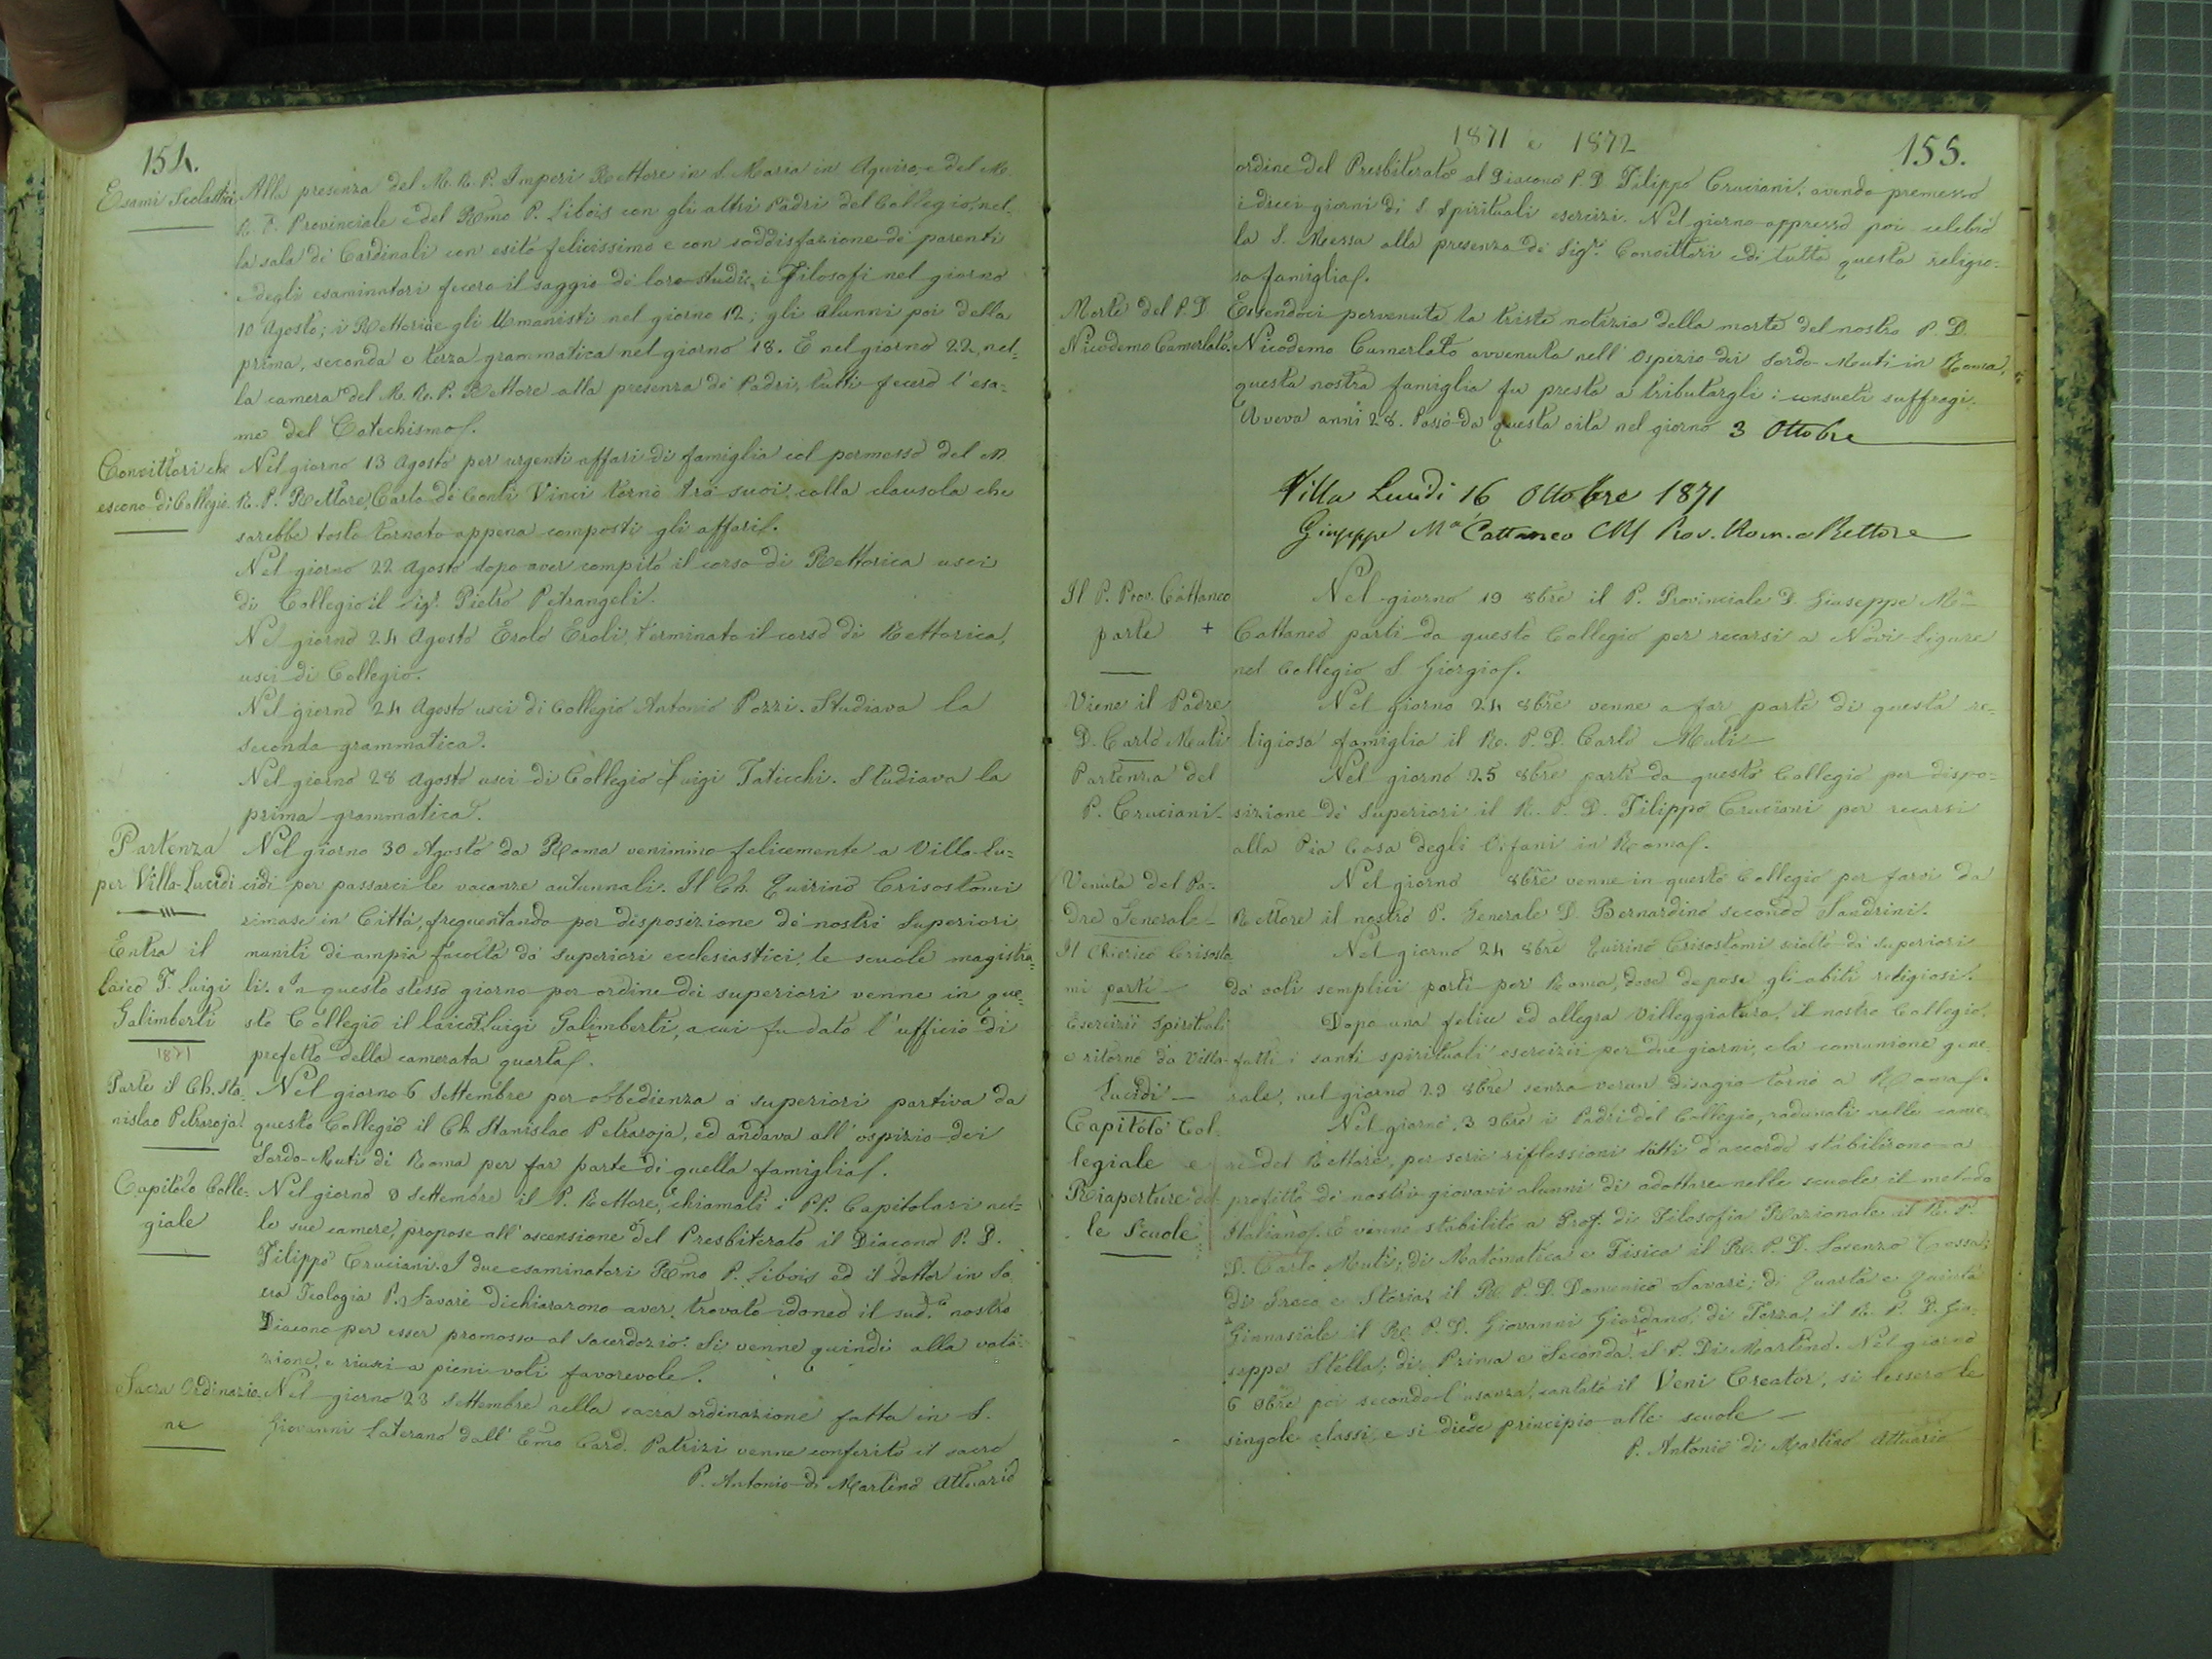 154.
Esami Scolastici
Alla presenza del M. R. P. Imperi Rettore in S. Maria in Aquiro, e del M.
R. P. Provinciale e del Rmo P. Libois con gli altri Padri del Collegio, nel-
la sala de' Cardinali con esito felicissimo e con soddisfazione de' parenti
e degli esaminatori fecero il saggio de' loro studi, i Filosofi nel giorno
10 Agosto; i Rettorici e gli Umanisti nel giorno 12; gli alunni poi della
prima, seconda e terza grammatica nel giorno 18. E nel giorno 22, nel-
la camera del M. R. P. Rettore alla presenza de' Padri, tutti fecero l'esa-
me del Catechismo.
Convittori che
escono di Collegio.
Nel giorno 13 Agosto per urgenti affari di famiglia col permesso del M
R. P. Rettore, Carlo de' Conti Vinci tornò tra' suoi, colla clausola che
sarebbe tosto tornato appena composti gli affari.
Nel giorno 22 Agosto dopo aver compito il corso di Rettorica uscì
di Collegio il Sigr. Pietro Petrangeli.
Nel giorno 24 Agosto Erolo Eroli, terminato il corso di Rettorica,
uscì di Collegio.
Nel giorno 24 Agosto uscì di Collegio Antonio Pozzi. Studiava la
seconda grammatica.
Nel giorno 28 Agosto uscì di Collegio Luigi Taticchi. Studiava la
prima grammatica.
Partenza
per Villa-Lucidi
Nel giorno 30 Agosto da Roma venimmo felicemente a Villa-Lu=
cidi per passarci le vacanze autunnali. Il Ch. Quirino Crisostomi
rimase in Città, frequentando per disposizione de' nostri Superiori
muniti di ampia facoltà da' superiori ecclesiastici, le scuole magistra=
Entra il
laico F. Luigi
Galimberti
1871
li. In questo stesso giorno per ordine dei superiori venne in que=
sto Collegio il laico F. Luigi Galimberti, a cui fu dato l'ufficio di
prefetto della camerata quarta.
Parte il Ch. Sta-
nislao Petraroja.
Nel giorno 6 Settembre per obbedienza a' superiori partiva da
questo Collegio il Ch. Stanislao Petraroja, ed andava all'ospizio dei
Sordo-Muti di Roma per far parte di quella famiglia.
Capitolo Colle-
giale
Nel giorno 8 settembre il P. Rettore, chiamati i PP. Capitolari nel=
le sue camere, propose all'ascensione del Presbiterato il Diacono P. D.
Filippo Cruciani. I due esaminatori Rmo P. Libois ed il dottor in Sa-
cra Teologia P. Savarè dichiararono aver trovato idoneo il sud.to nostro
Diacono per esser promosso al sacerdozio. Si venne quindi alla vota-
zione, e riuscì a pieni voti favorevole.
Sacra Ordinazio-
ne
Nel giorno 23 Settembre nella sacra ordinazione fatta in S.
Giovanni Laterano dall'Emo Card. Patrizi venne conferito il sacro
P. Antonio di Martino Attuario
1871 e 1872
155.
ordine del Presbiterato al Diacono P. D. Filippo Cruciani, avendo premesso
i dieci giorni di S. Spirituali esercizi. Nel giorno appresso poi celebrò
la S. Messa alla presenza de' Sigri Convittori e di tutta questa religio-
sa famiglia.
Morte del P. D
Nicodemo Cumerlato.
Essendoci pervenuta la triste notizia della morte del nostro P. D.
Nicodemo Cumerlato avvenuta nell'Ospizio dei Sordo-Muti in Roma,
questa nostra famiglia fu presta a tributargli i consueti suffragi.
Aveva anni 28. Passò da questa vita nel giorno 3 Ottobre
Villa Lucidi 16 Ottobre 1871
Giuseppe Ma Cattaneo CRS Prov. Rom. e Rettore
Il P. Prov. Cattaneo
parte +
Nel giorno 19 8bre il P. Provinciale D. Giuseppe Ma
Cattaneo partì da questo Collegio per recarsi a Novi Ligure
nel Collegio S. Giorgio.
Viene il Padre
D. Carlo Muti
Nel giorno 24 8bre venne a far parte di questa re=
ligiosa famiglia il R. P. D. Carlo Muti
Partenza del
P. Cruciani
Nel giorno 25 8bre partì da questo Collegio per dispo=
sizione de' Superiori il R. P. D. Filippo Cruciani per recarsi
alla Pia Casa degli Orfani in Roma.
Venuta del Pa-
dre Generale
Nel giorno 8bre venne in questo Collegio per farvi da
Rettore il nostro P. Generale D. Bernardino secondo Sandrini.
Il Chierico Crisosto-
mi partì
Nel giorno 24 8bre Quirino Crisostomi sciolto da' superiori
da' voti semplici partì per Roma, dove depose gli abiti religiosi.
Esercizii Spirituali
e ritorno da Villa-
Lucidi
Dopo una felice ed allegra villeggiatura, il nostro Collegio,
fatti i santi spirituali esercizii per due giorni, e la comunione gene-
rale, nel giorno 29 8bre senza verun disagio tornò a Roma.
Capitolo Col-
legiale e
Riaperture del-
le Scuole
Nel giorno 3 9bre i Padri del Collegio, radunati nelle came-
re del Rettore, per serie riflessioni tutti d'accordo stabilirono a
profitto de' nostri giovani alunni di adottare nelle scuole il metodo
Italiano. E venne stabilito a Prof. di Filosofia Razionale il R. P.
D. Carlo Muti; di Matematica e Fisica il R. P. D. Lorenzo Cossa;
di Greco e Storia il R. P. D. Domenico Savarè; di Quarta e Quinta
Ginnasiale il R. P. D. Giovanni Giordano; di Terza, il R. P. D. Giu-
seppe Stella; di Prima e Seconda il P. Di Martino. Nel giorno
6 9bre poi secondo l'usanza, cantato il Veni Creator, si lessero le
singole classi e si diede principio alle scuole
P. Antonio di Martino Attuario